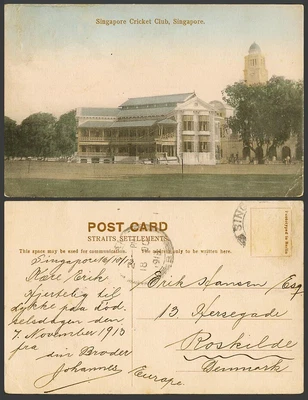 Singapore Cricket Club, Singapore.
POST CARD
STRAITS SETTLEMENTS.
This space may be used for communication.
The address only to be written here.
Singapore 18/10/13
Kære Erik
Hjertelig til
Lykke paa Föd-
selsdagen den
7. November 1913
fra
din Broder
Johannes
Erik Hansen Esq
13 Hersegade
Roskilde
Denmark
Europe
SING